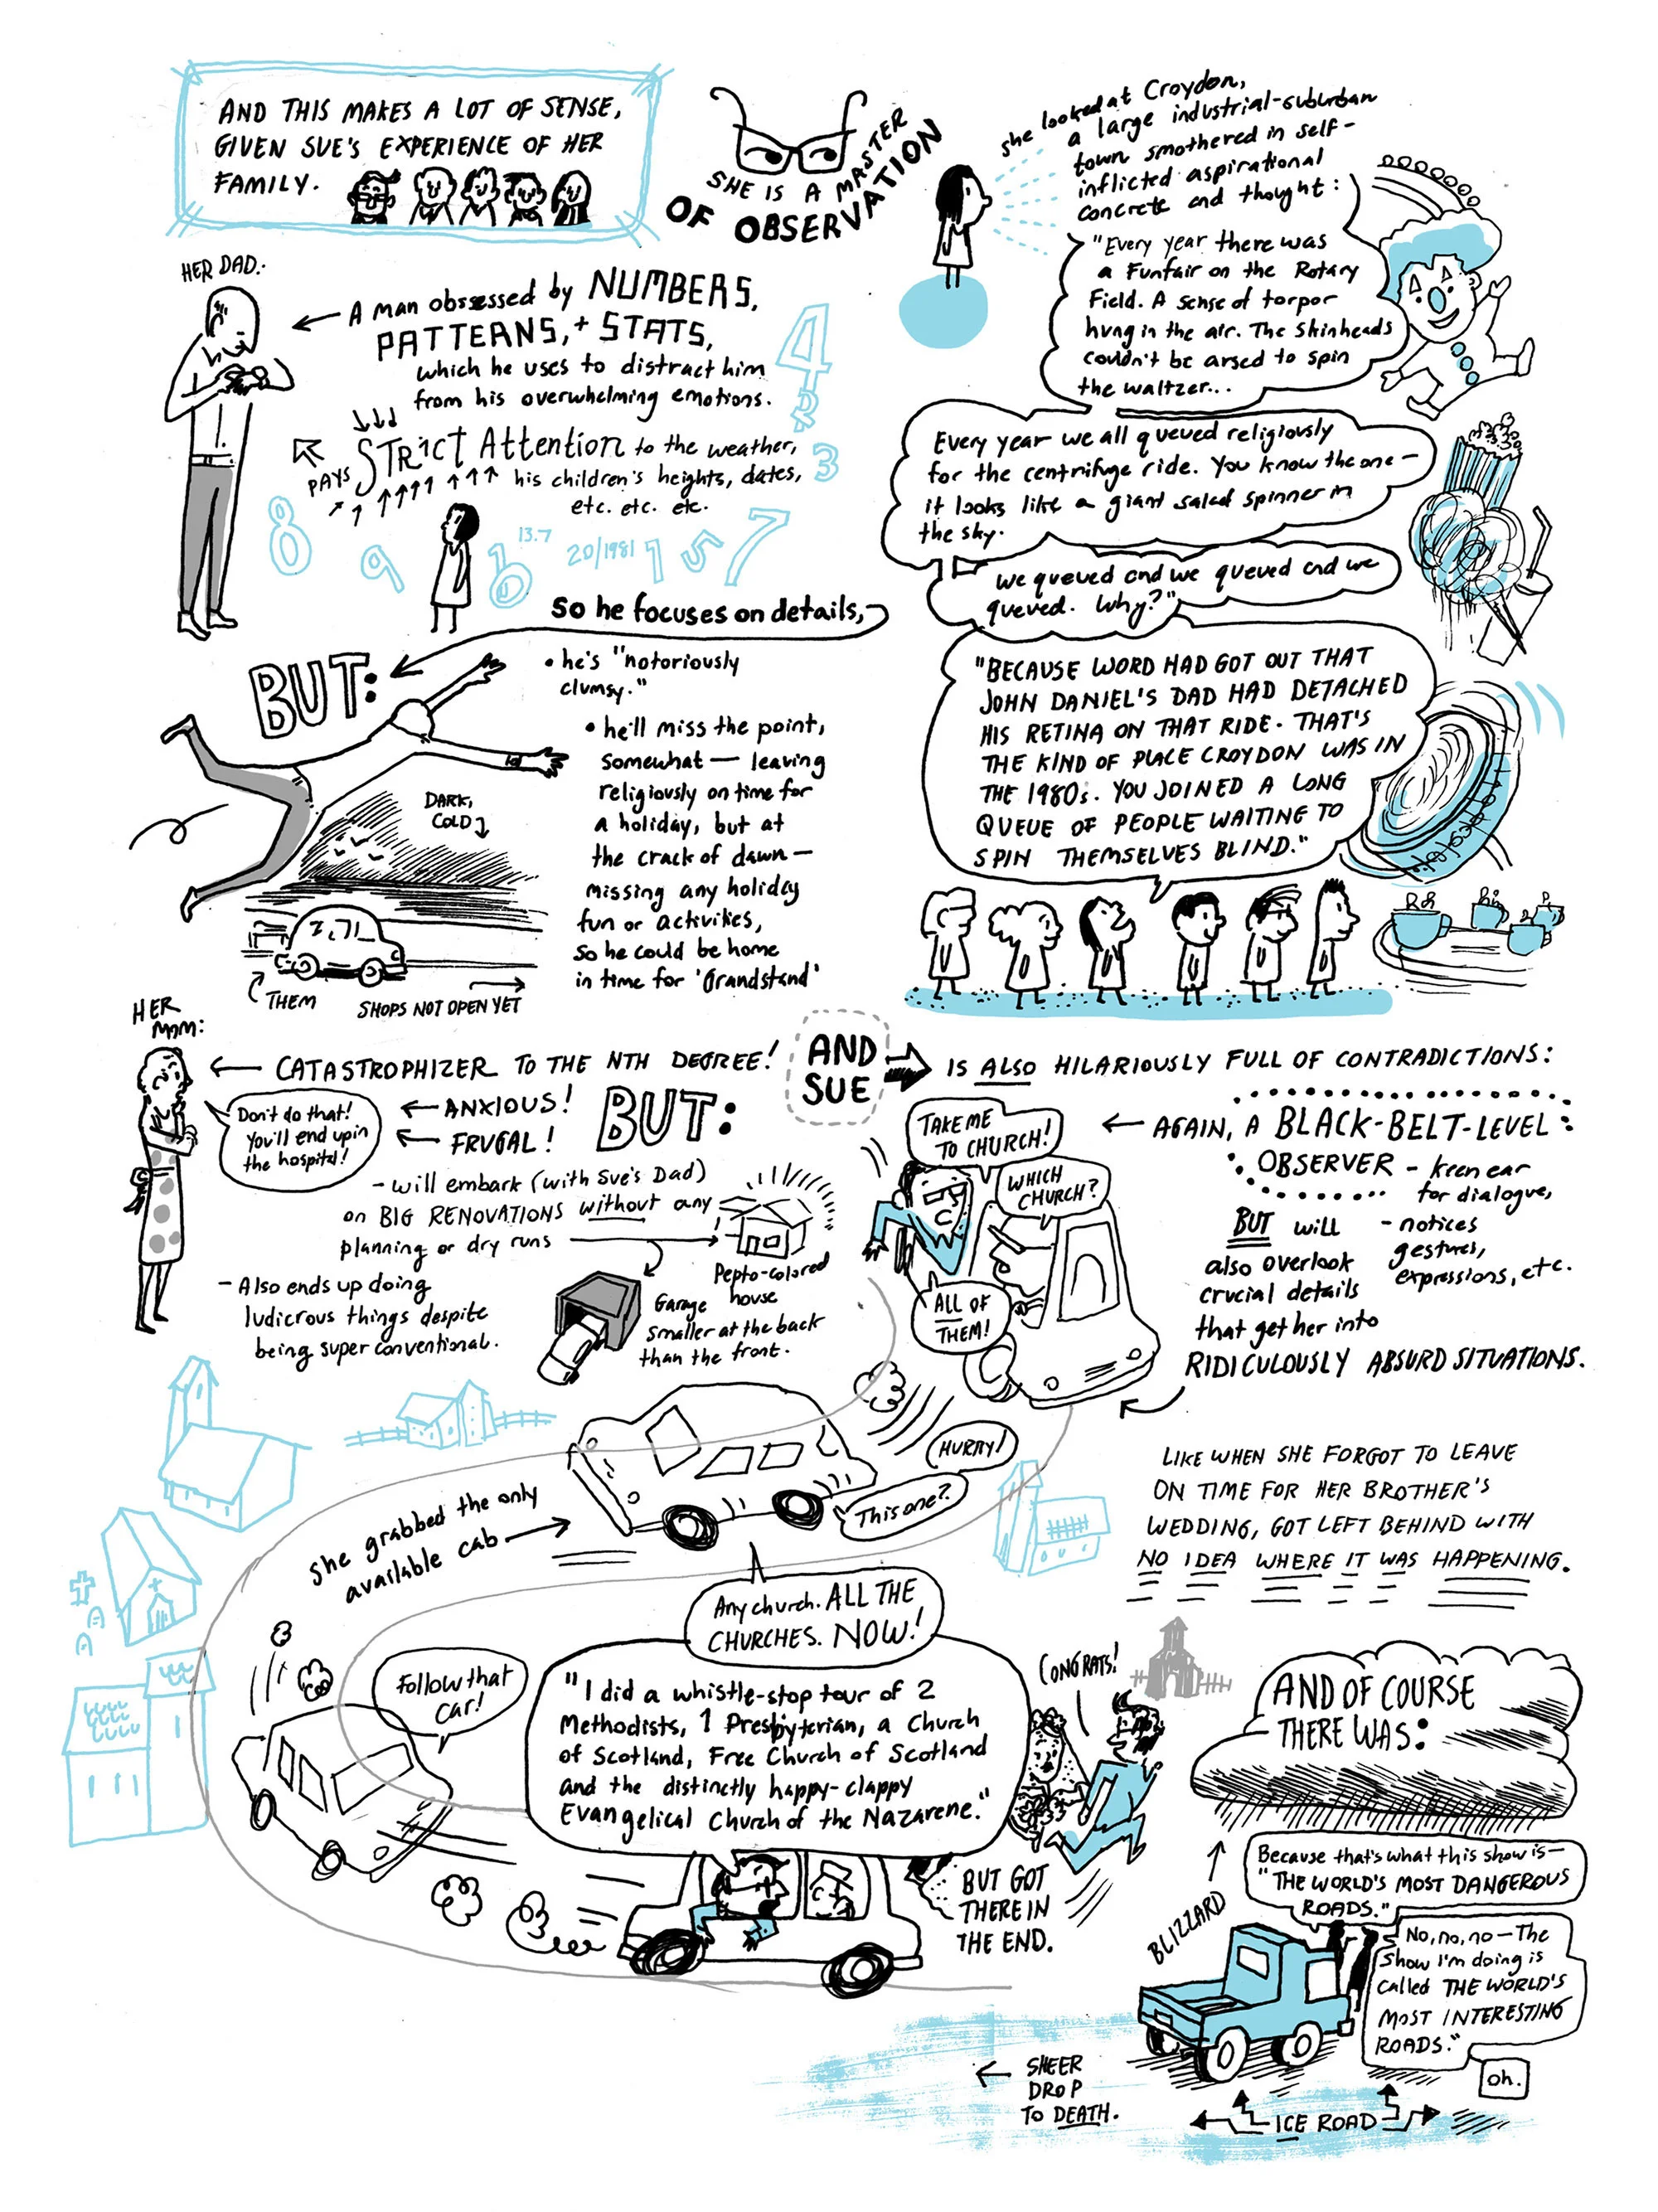 AND THIS MAKES A LOT OF SENSE,
GIVEN SUE'S EXPERIENCE OF HER
FAMILY.
SHE IS A MASTER
OF OBSERVATION
she looked at Croydon,
a large industrial-suburban
town smothered in self-
inflicted aspirational
concrete and thought:
"Every year there was
a Funfair on the Rotary
Field. A sense of torpor
hung in the air. The skinheads
couldn't be arsed to spin
the waltzer...
Every year we all queued religiously
for the centrifuge ride. You know the one—
it looks like a giant salad spinner in
the sky.
We queued and we queued and we
queued. Why?"
"BECAUSE WORD HAD GOT OUT THAT
JOHN DANIEL'S DAD HAD DETACHED
HIS RETINA ON THAT RIDE. THAT'S
THE KIND OF PLACE CROYDON WAS IN
THE 1980s. YOU JOINED A LONG
QUEUE OF PEOPLE WAITING TO
SPIN THEMSELVES BLIND."
HER DAD:
A man obsessed by NUMBERS,
PATTERNS, + STATS,
which he uses to distract him
from his overwhelming emotions.
PAYS STRICT Attention to the weather,
his children's heights, dates,
etc. etc. etc.
4
3
8
9
6
13.7
20/1981
1
5
7
so he focuses on details,
BUT:
• he's "notoriously
clumsy."
• he'll miss the point,
somewhat — leaving
religiously on time for
a holiday, but at
the crack of dawn —
missing any holiday
fun or activities,
so he could be home
in time for 'Grandstand'
DARK,
COLD
THEM
SHOPS NOT OPEN YET
HER
MOM:
CATASTROPHIZER TO THE NTH DEGREE!
Don't do that!
You'll end up in
the hospital!
ANXIOUS!
FRUGAL!
BUT:
- will embark (with Sue's Dad)
on BIG RENOVATIONS without any
planning or dry runs
Pepto-colored
house
Garage
smaller at the back
than the front.
- Also ends up doing
ludicrous things despite
being super conventional.
AND
SUE
IS ALSO HILARIOUSLY FULL OF CONTRADICTIONS:
AGAIN, A BLACK-BELT-LEVEL
OBSERVER - keen ear
for dialogue,
- notices
gestures,
expressions, etc.
BUT will
also overlook
crucial details
that get her into
RIDICULOUSLY ABSURD SITUATIONS.
TAKE ME
TO CHURCH!
WHICH
CHURCH?
ALL OF
THEM!
LIKE WHEN SHE FORGOT TO LEAVE
ON TIME FOR HER BROTHER'S
WEDDING, GOT LEFT BEHIND WITH
NO IDEA WHERE IT WAS HAPPENING.
she grabbed the only
available cab
HURRY!
This one?
Any church. ALL THE
CHURCHES. NOW!
Follow that
car!
"I did a whistle-stop tour of 2
Methodists, 1 Presbyterian, a Church
of Scotland, Free Church of Scotland
and the distinctly happy-clappy
Evangelical Church of the Nazarene."
CONGRATS!
BUT GOT
THERE IN
THE END.
AND OF COURSE
THERE WAS:
BLIZZARD
Because that's what this show is—
"THE WORLD'S MOST DANGEROUS
ROADS."
No, no, no — The
show I'm doing is
called THE WORLD'S
MOST INTERESTING
ROADS."
oh.
SHEER
DROP
TO DEATH.
ICE ROAD